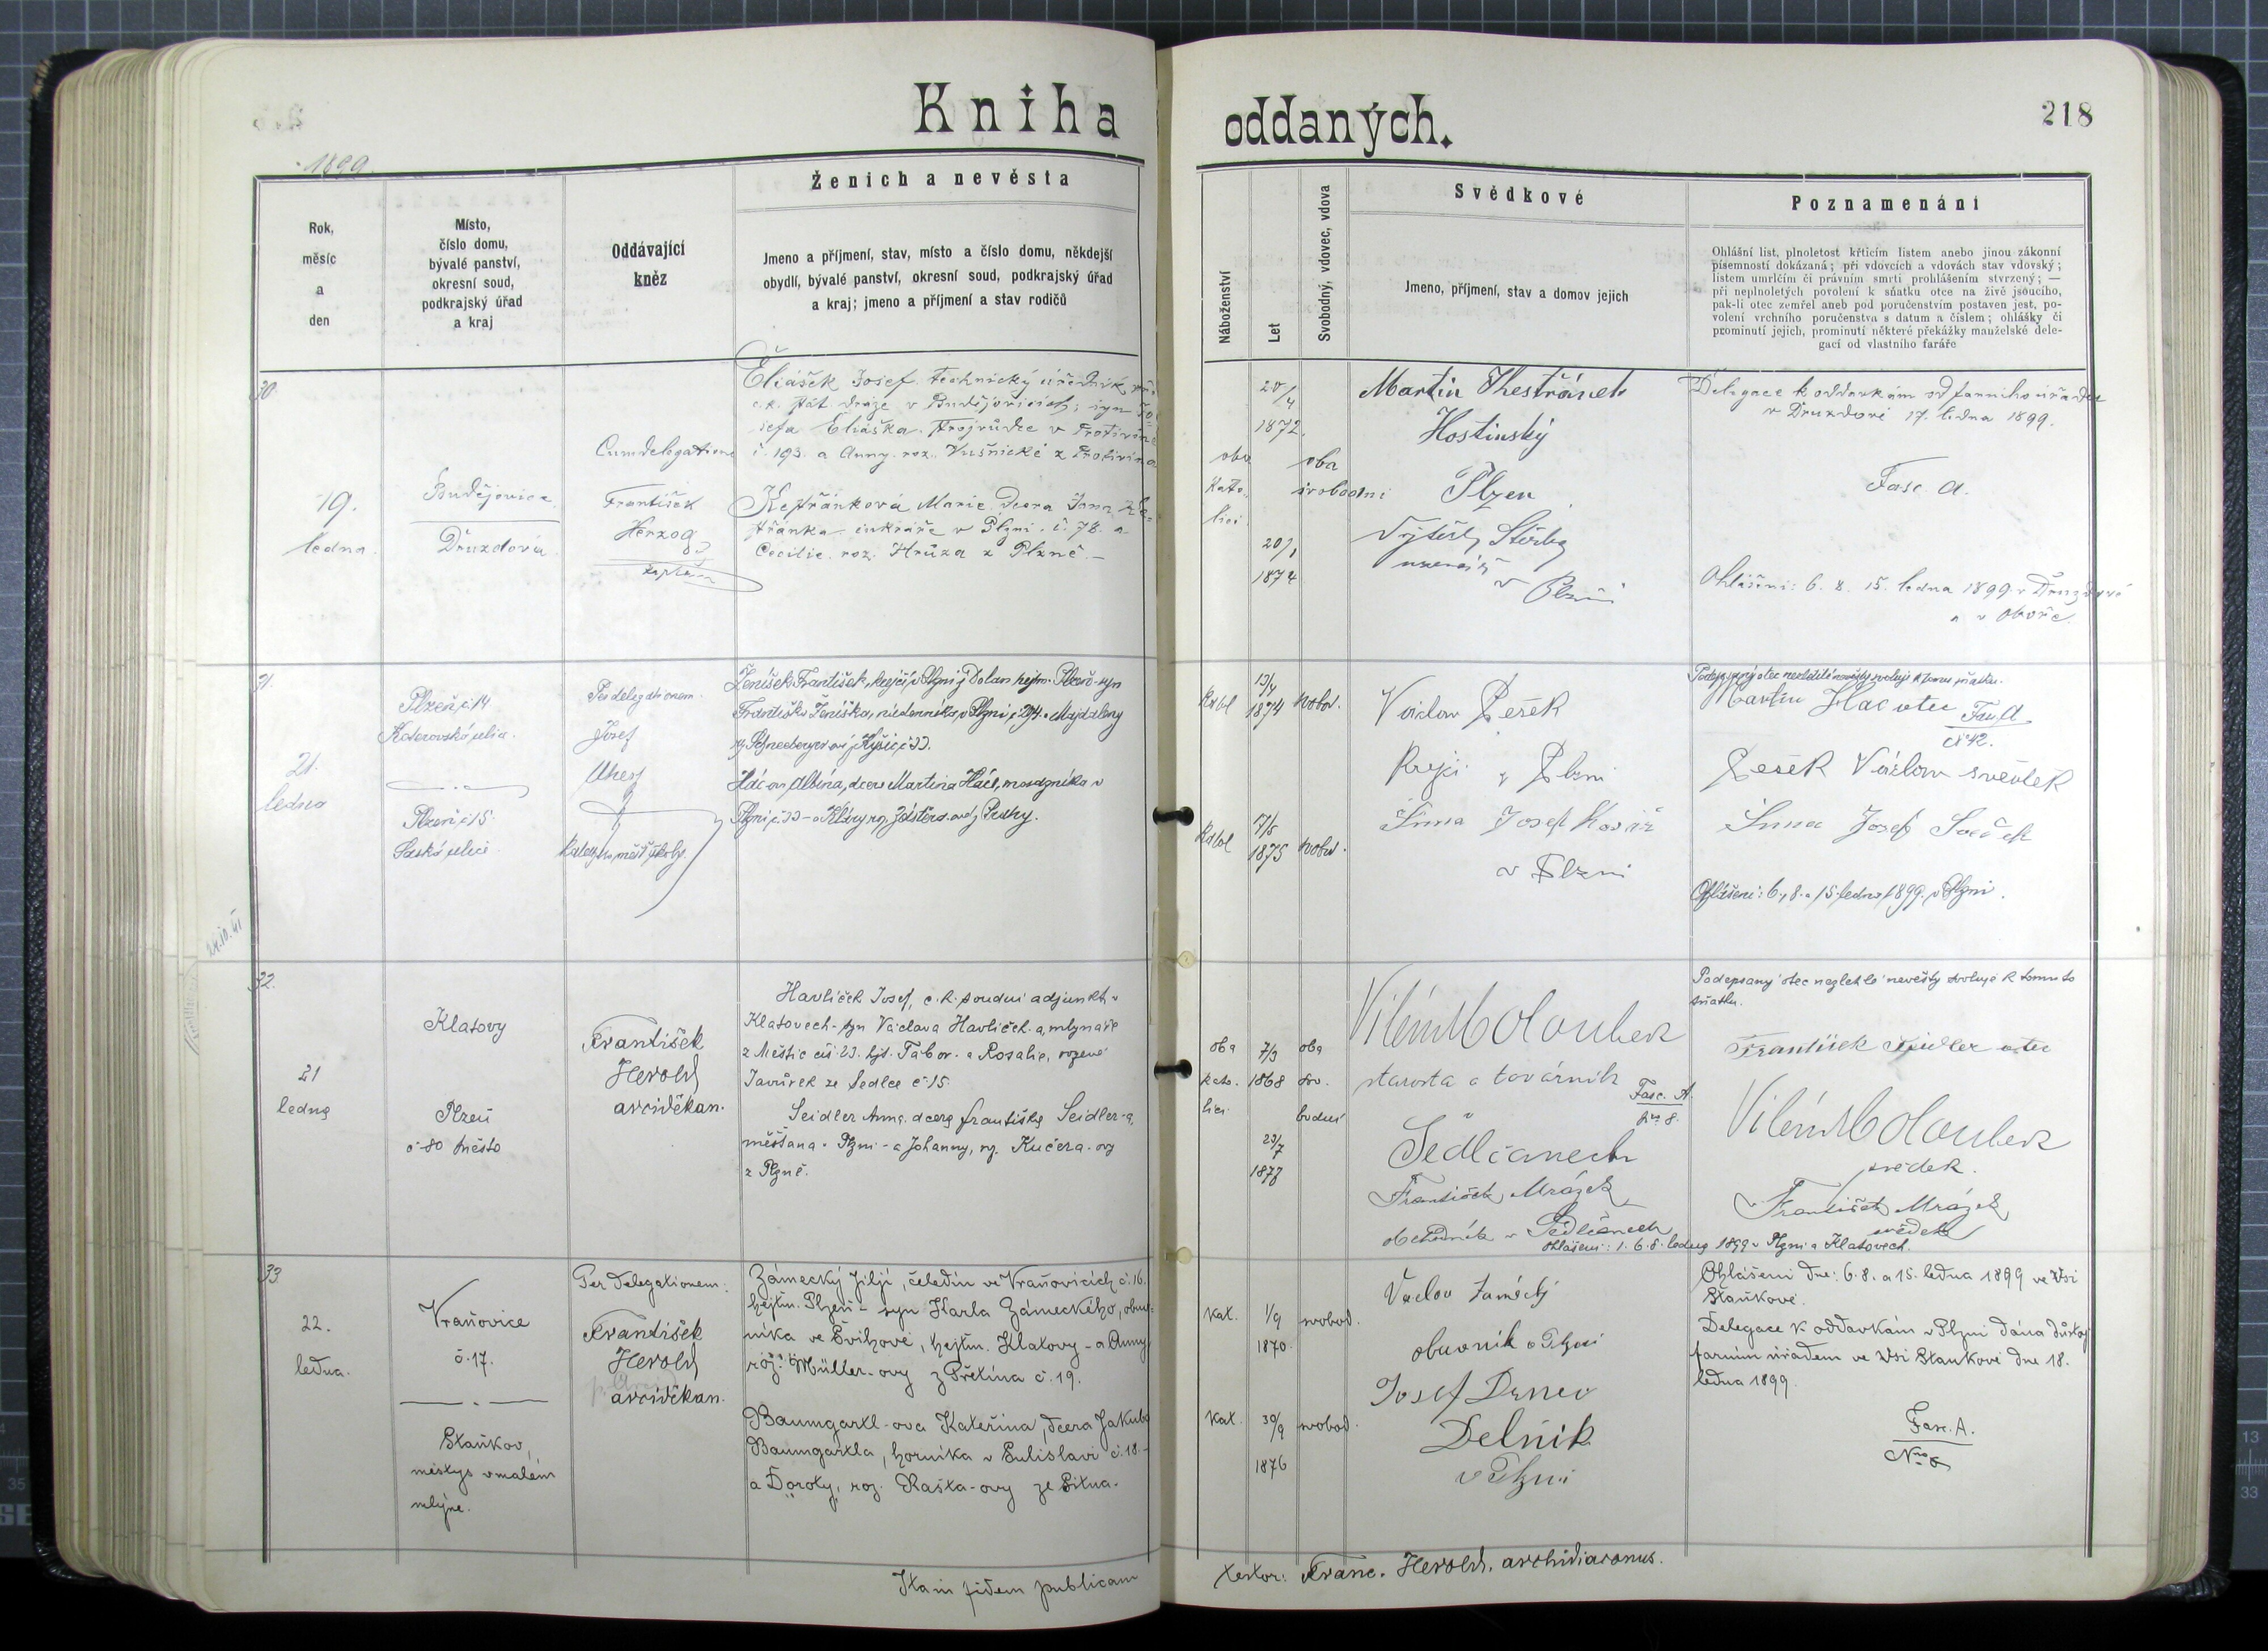 Kniha
oddaných.
218
1899.
Rok,
měsíc
a
den
Místo,
číslo domu,
bývalé panství,
okresní soud,
podkrajský úřad
a kraj
Oddávající
kněz
Ženich a nevěsta
Jmeno a příjmení, stav, místo a číslo domu, někdejší
obydlí, bývalé panství, okresní soud, podkrajský úřad
a kraj; jmeno a příjmení a stav rodičů
Náboženství
Let
Svobodný, vdovec, vdova
Svědkové
Jmeno, příjmení, stav a domov jejich
Poznamenání
Ohlášní list, plnoletost křticím listem anebo jinou zákonní
písemností dokázaná; při vdovcích a vdovách stav vdovský;
listem umrlčím či právním smrti prohlášením stvrzený; —
při neplnoletých povolení k sňatku otce na živě jsoucího,
pak-li otec zemřel aneb pod poručenstvím postaven jest, po-
volení vrchního poručenstva s datum a číslem; ohlášky či
prominutí jejich, prominutí některé překážky manželské dele-
gací od vlastního faráře
30.
19.
ledna.
Budějovice
Družďová
Cum delegatione
František
Herzog
kaplan
Eliášek Josef, technický úředník při
c.k. stát. dráze v Budějovicích; syn Jo-
sefa Eliáška v Protivíně
č. 193. a Anny roz. z Protivína
Marie dcera Jana
v Plzni č. 78. a
Cecilie roz. Hrůza z Plzně.—
oba
kato-
lici
20/4
1872.
20/1
1874
oba
svobodni
Martin
Hostinský
Plzen
uzenář v Plzni
Delegace k oddavkám od farního úřadu
v Družďové 17. ledna 1899.
Fasc. A.
Ohlášení: 6. 8. 15. ledna 1899 v Družďové
a v Oboře.
31.
21.
ledna
Plzeň č. 14
Koterovská ulice.
Plzeň č. 15
Saská ulice
Per delegationem.
Josef
městs. školy.
Ženíšek František, krejčí v Plzni z Dolan hejtm. Plzeň - syn
Františka Ženíška, v Plzni, č. 294. a Majdaleny
Hác-ova Albína, dcera Martina Háce, v
Plzni č. 33 - a Kláry roz.
Katol
13/4
1874
svobod.
Katol
7/5
1875
svobod.
Václav Pešek
Krejčí v Plzni
Josef
v Plzni
Podepsaný otec nezletilé nevěsty svoluje k tomu sňatku.
Martin Hac otec
Fasc. A
č. 42.
Pešek Václav svědek
Josef
Ohlášení: 6., 8. a 15. ledna 1899. v Plzni.
24.10.41
32.
21
ledna
Klatovy
Plzeň
č. 80 město
František
Herold
arciděkan.
Havlíček Josef, c.k. soudní adjunkt v
Klatovech - syn Václava Havlíček-a, mlynáře
z Měštic čís. 23. hjt. Tábor. a Rosalie, rozené
Javůrek ze Sedlce č. 15.
Seidler Anna dcera Františka Seidler-a,
měšťana v Plzni - a Johanny, roz. Kučera-ovy
z Plzně.
oba
kato-
lici
7/3
1868
23/7
1877
oba
svo-
bodní
Vilém Holoubek
starosta a továrník
v
Sedlčanech
František Mrázek
obchodník v Sedlčanech
Fasc. A.
Nro 8.
Podepsaný otec nezletilé nevěsty svoluje k tomuto
sňatku.
František Seidler otec
Vilém Holoubek
svědek.
František Mrázek
svědek
Ohlášení: 1. 6. 8. ledna 1899 v Plzni a Klatovech.
33
22.
ledna.
Vraňovice
č. 17.
Staňkov,
městys v malém
mlýně.
Per delegationem:
František
Herold
arciděkan.
Zámecký Jiljí, čeledín ve Vraňovicích č. 16.
hejtm. Plzeň - syn Karla Zámeckého, obuv-
níka ve Švihově, hejtm. Klatovy - a Anny
roz. Müller-ovy z Přetína č. 19.
Baumgartl-ova Kateřina, dcera Jakuba
Baumgartla, horníka v Sulislavi č. 18.-
a Doroty, roz. Rašta-ovy ze Sitna.
Kat.
1/9
1870.
svobod.
Kat.
30/9
1876
svobod.
Václav Zámecký
obuvník v Plzni
Josef
Dělnik
v Plzni
Ohlášení dne: 6. 8. a 15. ledna 1899 ve Vsi
Staňkově.
Delegace k oddavkám v Plzni dána důstoj.
farním úřadem ve Vsi Staňkově dne 18.
ledna 1899.
Fasc. A.
Nro 8
Ita in fidem publicam
testor: Franc. Herold, archidiaconus.